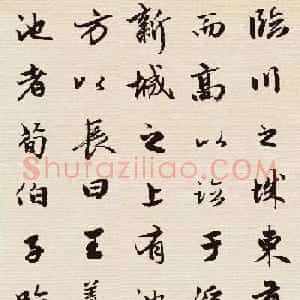 臨川之城東有
而高以臨于溪
新城之上有池
方以長曰王羲
池者荀伯子臨
Shufaziliao.com